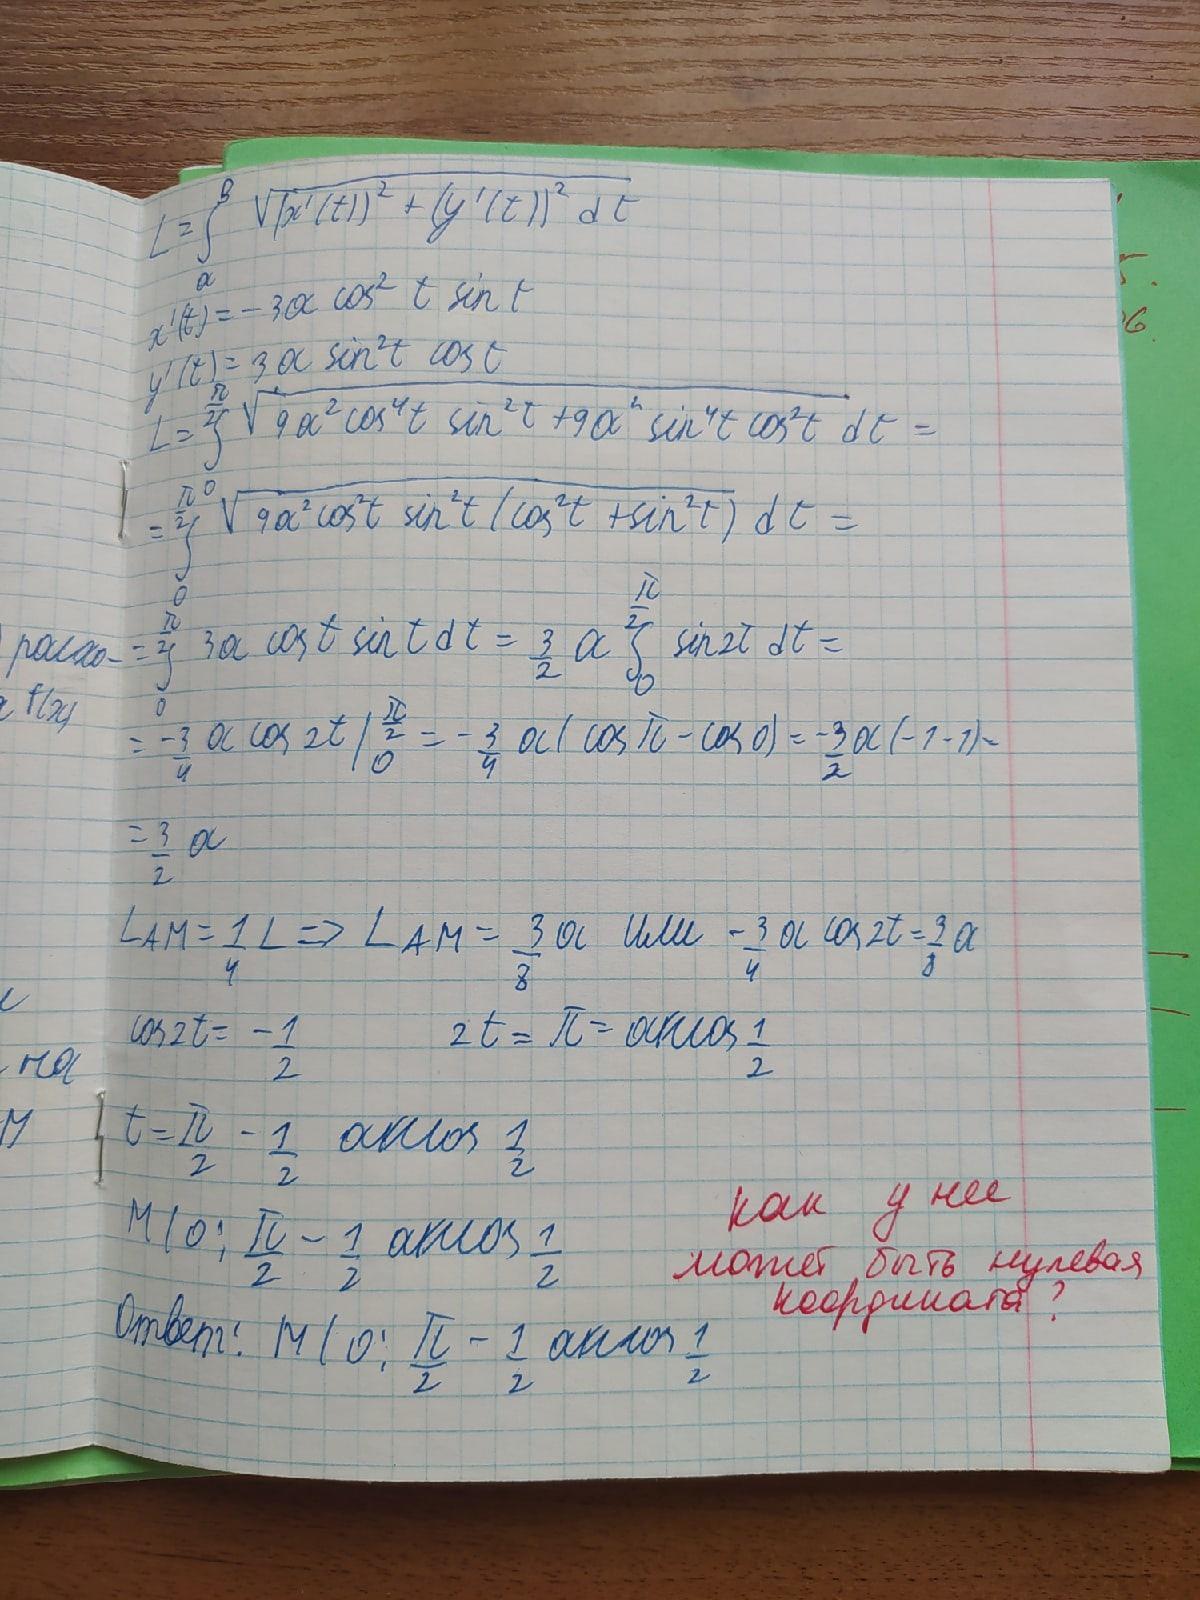 L = ∫_α^β √((x'(t))² + (y'(t))² dt
x'(t) = -3a cos² t sin t
y'(t) = 3a sin²t cos t
L = ∫_0^{π/2} √(9a²cos⁴t sin²t + 9a² sin⁴t cos²t) dt =
= ∫_0^{π/2} √(9a²cos²t sin²t (cos²t + sin²t)) dt =
= ∫_0^{π/2} 3a cos t sin t dt = 3/2 a ∫_0^{π/2} sin2t dt =
= -3/4 a cos 2t |_0^{π/2} = -3/4 a (cos π - cos 0) = -3/2 a (-1-1) =
= 3/2 a
L_AM = 1/4 L => L_AM = 3/8 a или -3/4 a cos 2t = 3/8 a
cos 2t = -1/2 2t = π - arccos 1/2
t = π/2 - 1/2 arccos 1/2
M(0; π/2 - 1/2 arccos 1/2
Ответ: M(0; π/2 - 1/2 arccos 1/2
как у нее
может быть нулевая
координата?
расхо-
f(x)
на
M